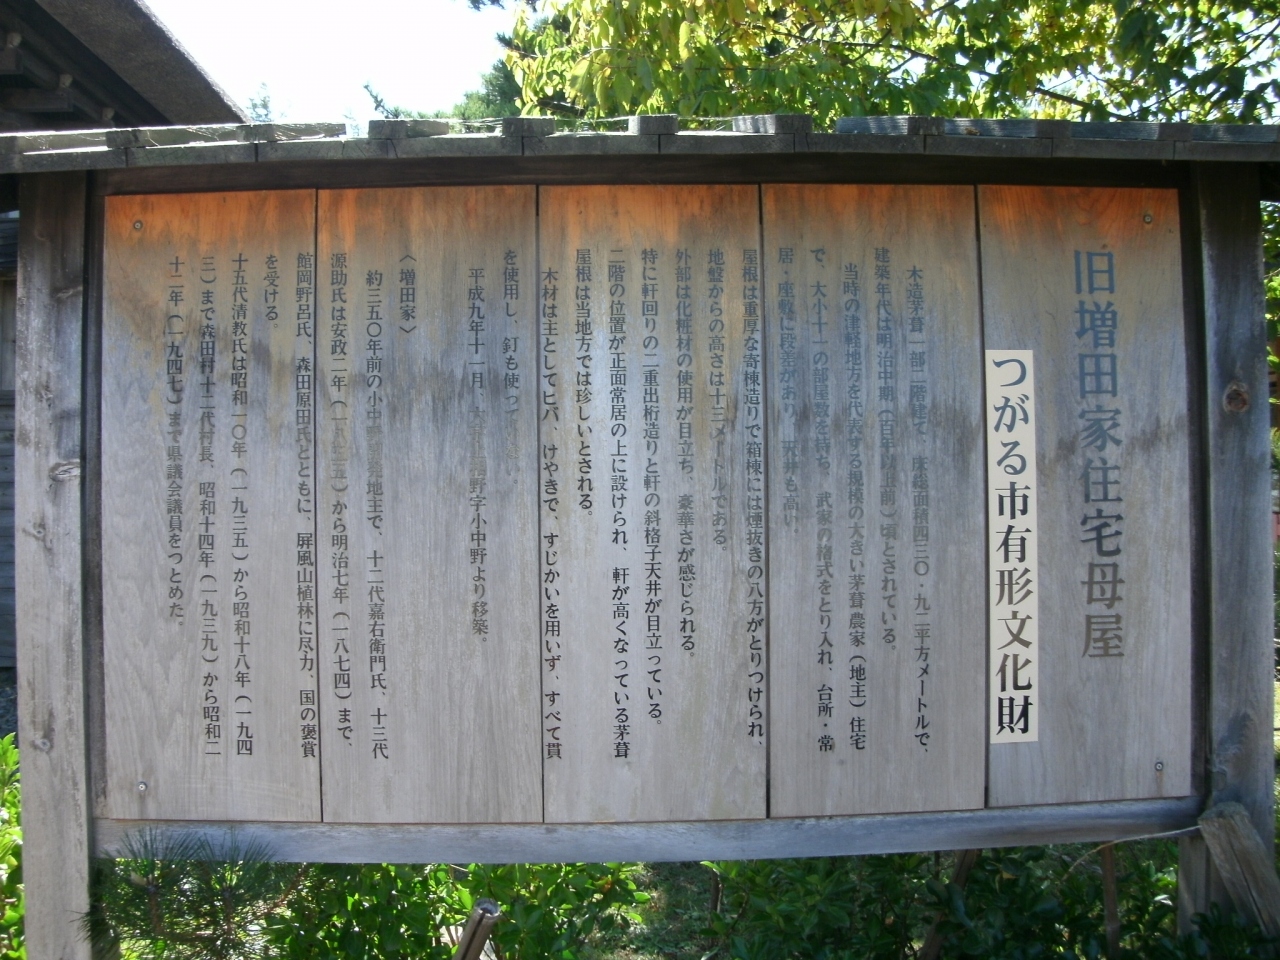 旧増田家住宅母屋
つがる市有形文化財
木造茅葺一部二階建て、床総面積四三〇・九二平方メートルで、
建築年代は明治中期（百年以上前）頃とされている。
当時の津軽地方を代表する規模の大きい茅葺農家（地主）住宅
で、大小十一の部屋数を持ち、武家の格式をとり入れ、台所・常
居・座敷に段差があり、天井も高い。
屋根は重厚な寄棟造りで箱棟には煙抜きの八方がとりつけられ、
地盤からの高さは十三メートルである。
外部は化粧材の使用が目立ち、豪華さが感じられる。
特に軒回りの二重出桁造りと軒の斜格子天井が目立っている。
二階の位置が正面常居の上に設けられ、軒が高くなっている茅葺
屋根は当地方では珍しいとされる。
木材は主としてヒバ、けやきで、すじかいを用いず、すべて貫
を使用し、釘も使って
平成九年十一月、野字小中野より移築。
〈増田家〉
約三五〇年前の小中野開発地主で、十二代嘉右衛門氏、十三代
源助氏は安政二年（一八五五）から明治七年（一八七四）まで、
館岡野呂氏、森田原田氏とともに、屏風山植林に尽力、国の褒賞
を受ける。
十五代清教氏は昭和一〇年（一九三五）から昭和十八年（一九四
三）まで森田村十二代村長、昭和十四年（一九三九）から昭和二
十二年（一九四七）まで県議会議員をつとめた。